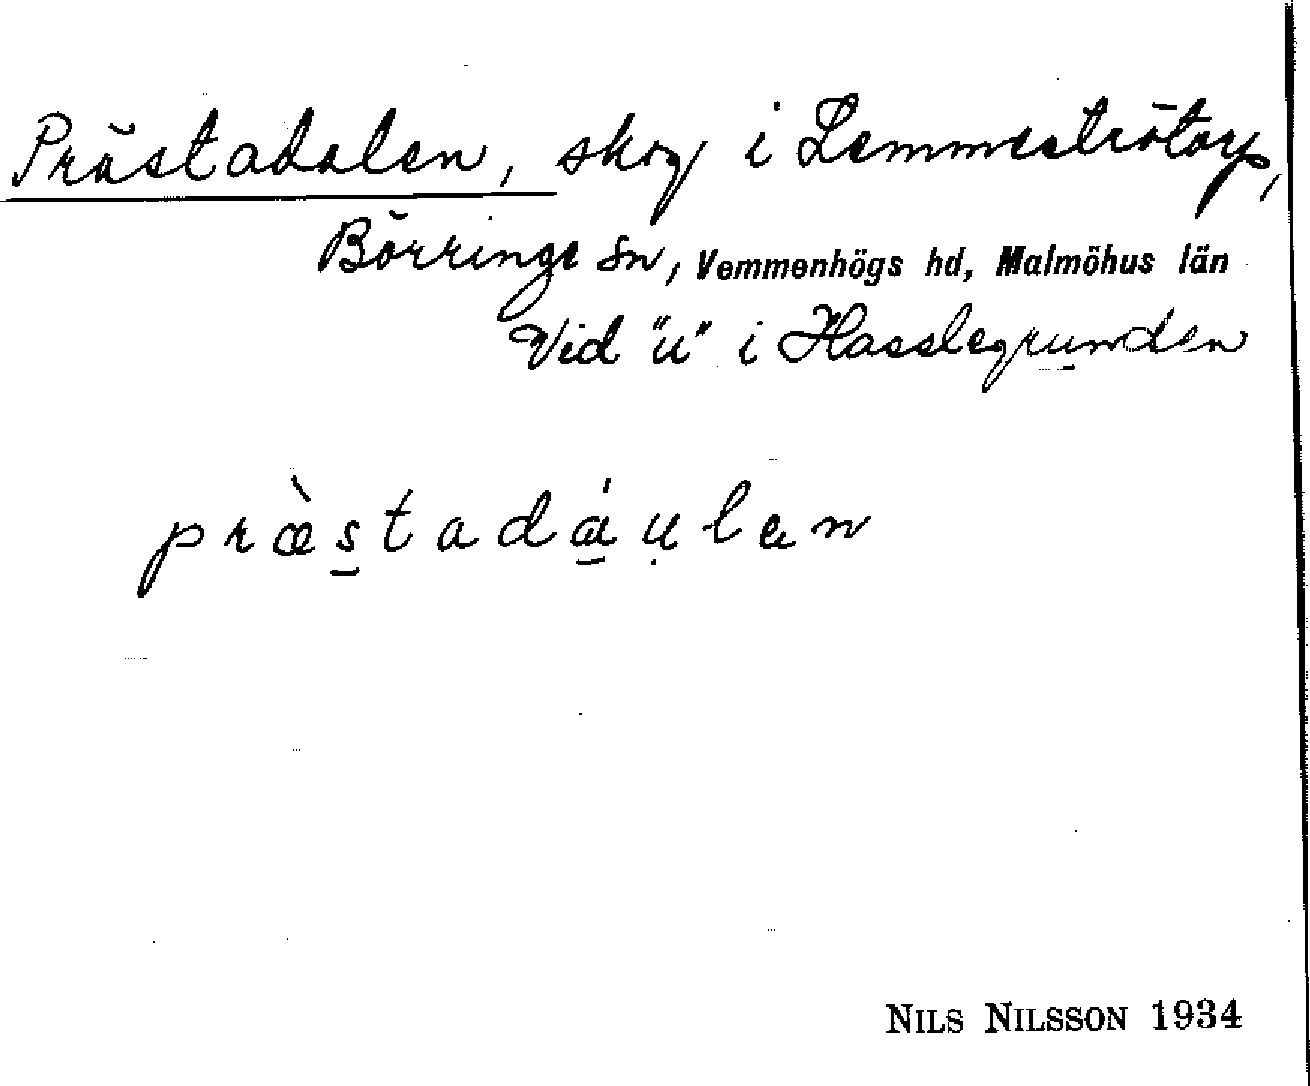 Prästadalen, skog i Lemmeströtorp,
Börringe sn, Vemmenhögs hd, Malmöhus län
Vid "u" i Hasslegrunden
præ̀s̲tadá̲ụlen
NILS NILSSON 1934